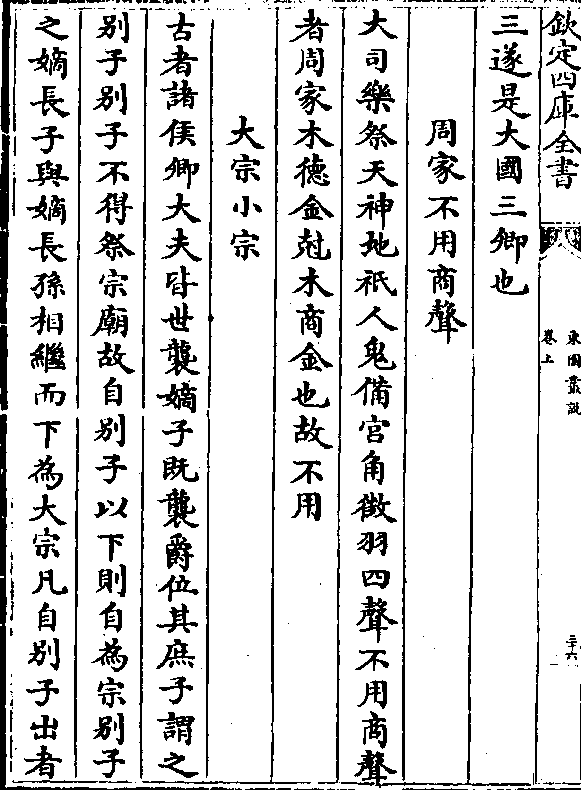 欽定四庫全書
東園叢說
卷上
二十六
三遂是大國三卿也
周家不用商聲
大司樂祭天神地祇人鬼備宮角徵羽四聲不用商聲
者周家木德金尅木商金也故不用
大宗小宗
古者諸侯卿大夫皆世襲嫡子既襲爵位其庶子謂之
別子別子不得祭宗廟故自別子以下則自為宗別子
之嫡長子與嫡長孫相繼而下為大宗凡自別子出者